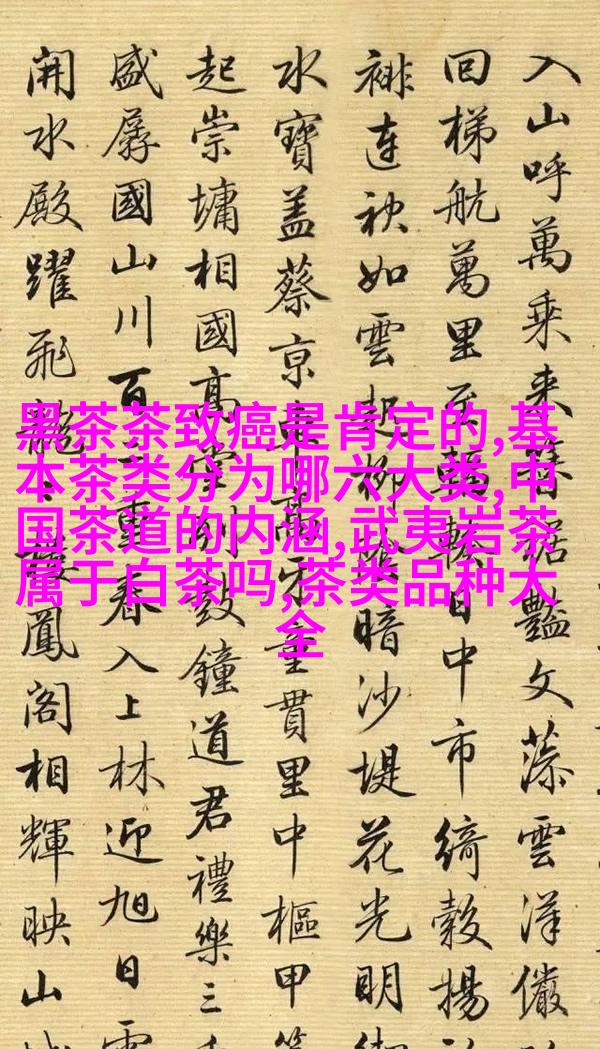 入山呼萬乘来裾豔文藻雲洋儼
回梯航萬里至日中市綺縠揚
連袂如雲起柳暗沙堤花光明
水寶盖蔡京童貫里中樞甲
起崇墉相國高别鼓鐘道君禮樂三
盛孱國山川百二重春入上林迎旭日
開水殿躍飛龍鳳阁相輝映山
黑茶茶致癌是肯定的,基
本茶类分为哪六大类,中
国茶道的内涵,武夷岩茶
属于白茶吗,茶类品种大
全